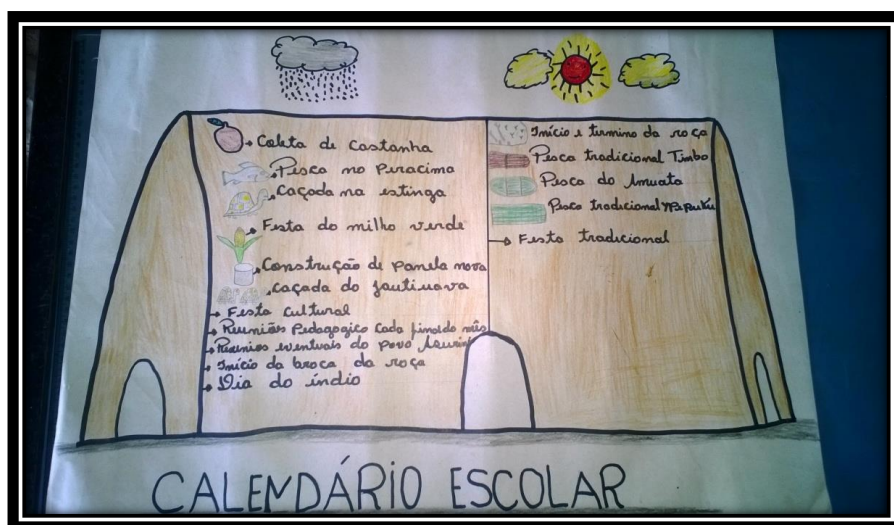 Coleta de Castanha
Pesca no Piracima
Caçada na estinga
Festa do milho verde
Construção de panela nova
caçada do jautinava
Festa cultural
Reuniões Pedagogico cada final do mês
Reunios eventuais do povo Asurini
Início da broca da roça
Dia do índio
Início e termino da roça
Pesca tradicional Timbo
Pesca do Amuata
Pesca tradicional
Festa tradicional
CALENDÁRIO ESCOLAR